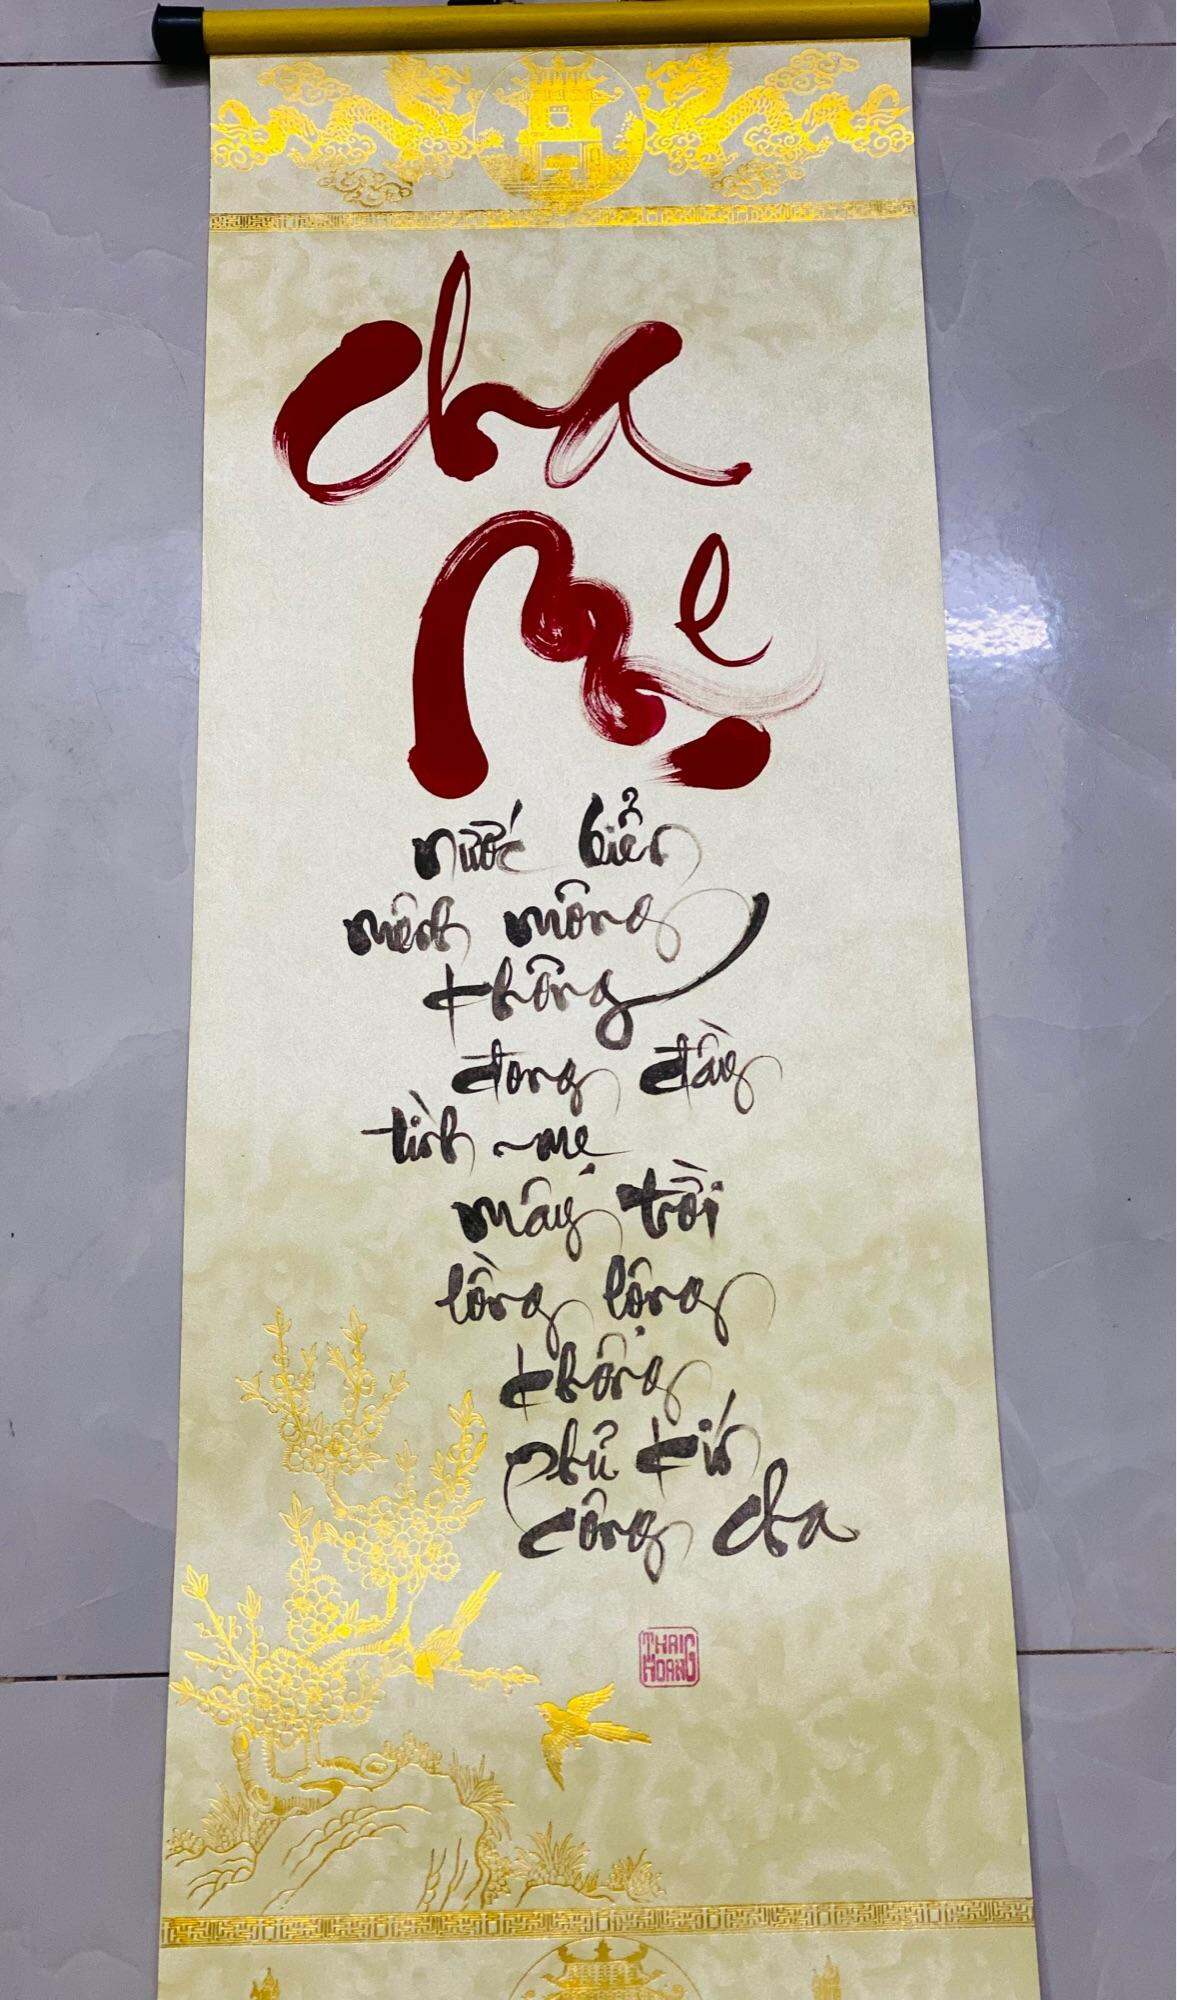 cha
mẹ
nước biển
mênh mông
không
đong đầy
tình mẹ
mây trời
lồng lộng
không
phủ kín
công cha
THAI
HOANG